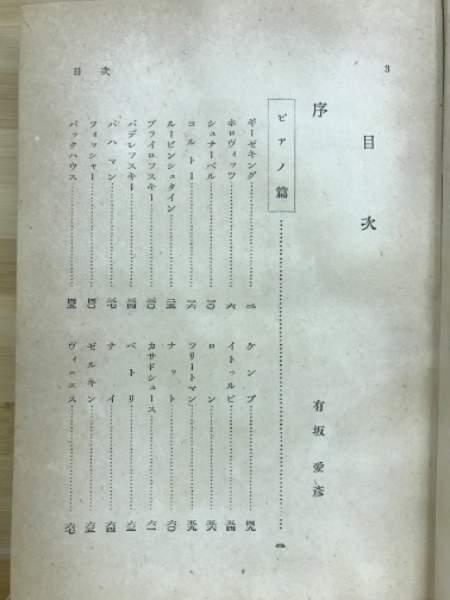 目次
3
目次
序 有坂愛彦
ピアノ篇
ギーゼキング
ホロヴィッツ 六
シュナーベル 一〇
コルトー 一六
ルービンシュタイン 二五
ブライロフスキー 三〇
パデレフスキー 三四
パハマン 三七
フィッシャー 四〇
バックハウス 四五
ケンプ 四九
イトゥルビ 五四
ロン 五六
フリートマン 五九
ナット 六〇
カサドシュース 六一
ペトリ
ナイ 六四
ゼルキン 六五
ヴィニエス 六七